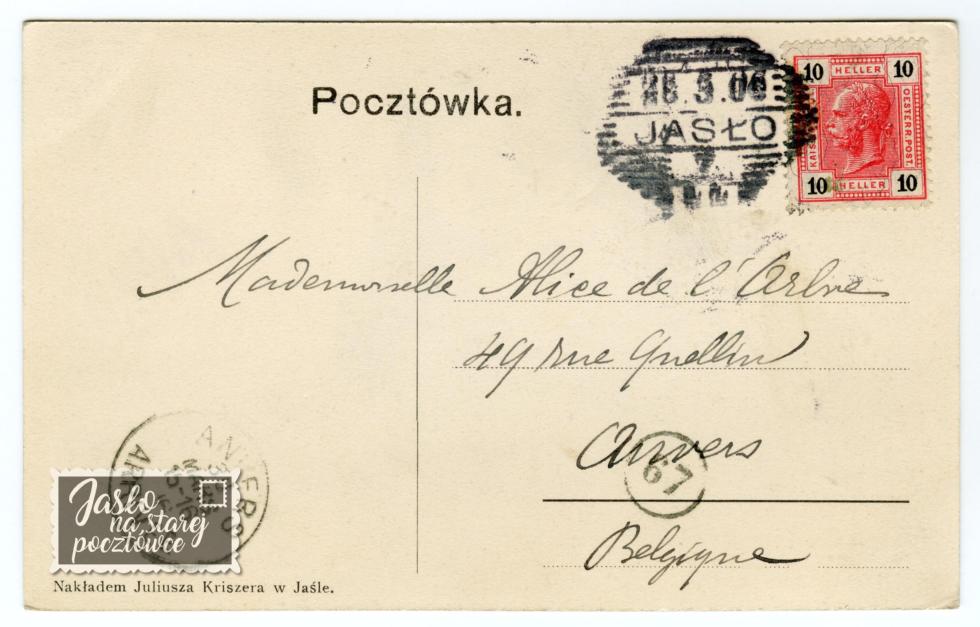 Pocztówka.
28.3.06
JASŁO
10 HELLER 10
KAIS
OESTERR. POST.
10 HELLER 10
Mademoiselle Alice de l'Arbre
49 rue Quellin
Anvers
67
Belgique
ANVERS
Jasło
na starej
pocztówce
Nakładem Juliusza Kriszera w Jaśle.